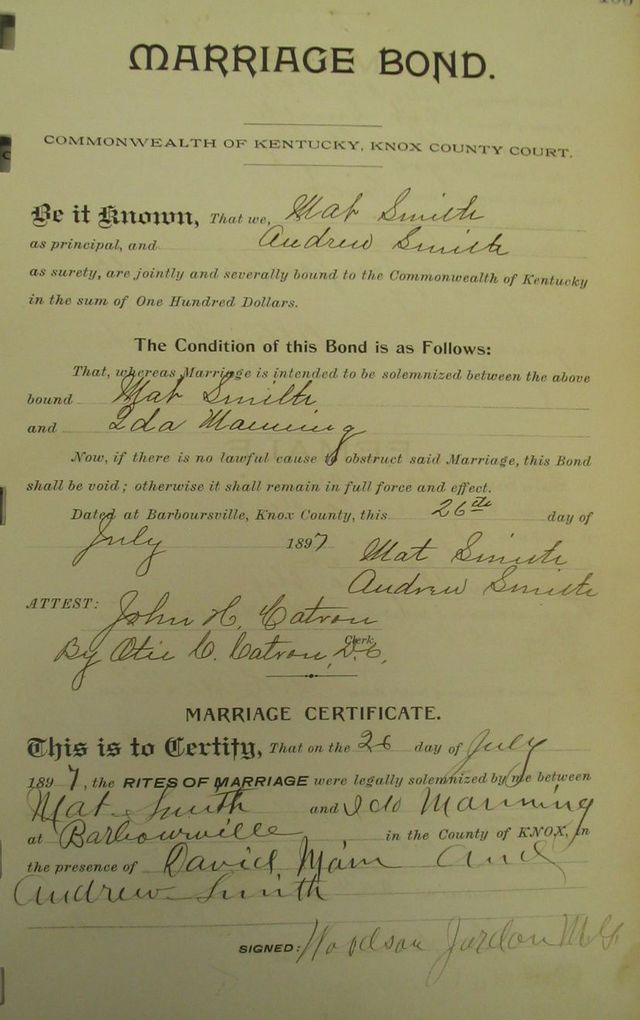 MARRIAGE BOND.
COMMONWEALTH OF KENTUCKY, KNOX COUNTY COURT.
Be it Known, That we, Mat Smith
as principal, and Andrew Smith
as surety, are jointly and severally bound to the Commonwealth of Kentucky
in the sum of One Hundred Dollars.
The Condition of this Bond is as Follows:
That, whereas Marriage is intended to be solemnized between the above
bound Mat Smith
and Ida Manning
Now, if there is no lawful cause to obstruct said Marriage, this Bond
shall be void; otherwise it shall remain in full force and effect.
Dated at Barboursville, Knox County, this 26th day of
July 1897 Mat Smith
Andrew Smith
ATTEST: John H. Catron
Clerk
By Otie C. Catron, D.C.
MARRIAGE CERTIFICATE.
This is to Certify, That on the 26 day of July
1897, the RITES OF MARRIAGE were legally solemnized by me between
Mat Smith and Ida Manning
at Barbourville in the County of KNOX, in
the presence of David and
Andrew Smith
SIGNED: Woodson Jordon M G